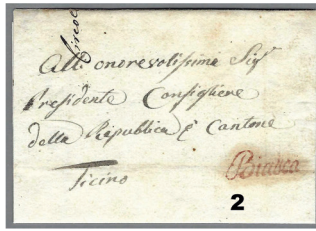 Circolo
Alli onorevolissimi Sigri
Presidente Consigliere
della Republica e Cantone
Ticino
Biasca
2